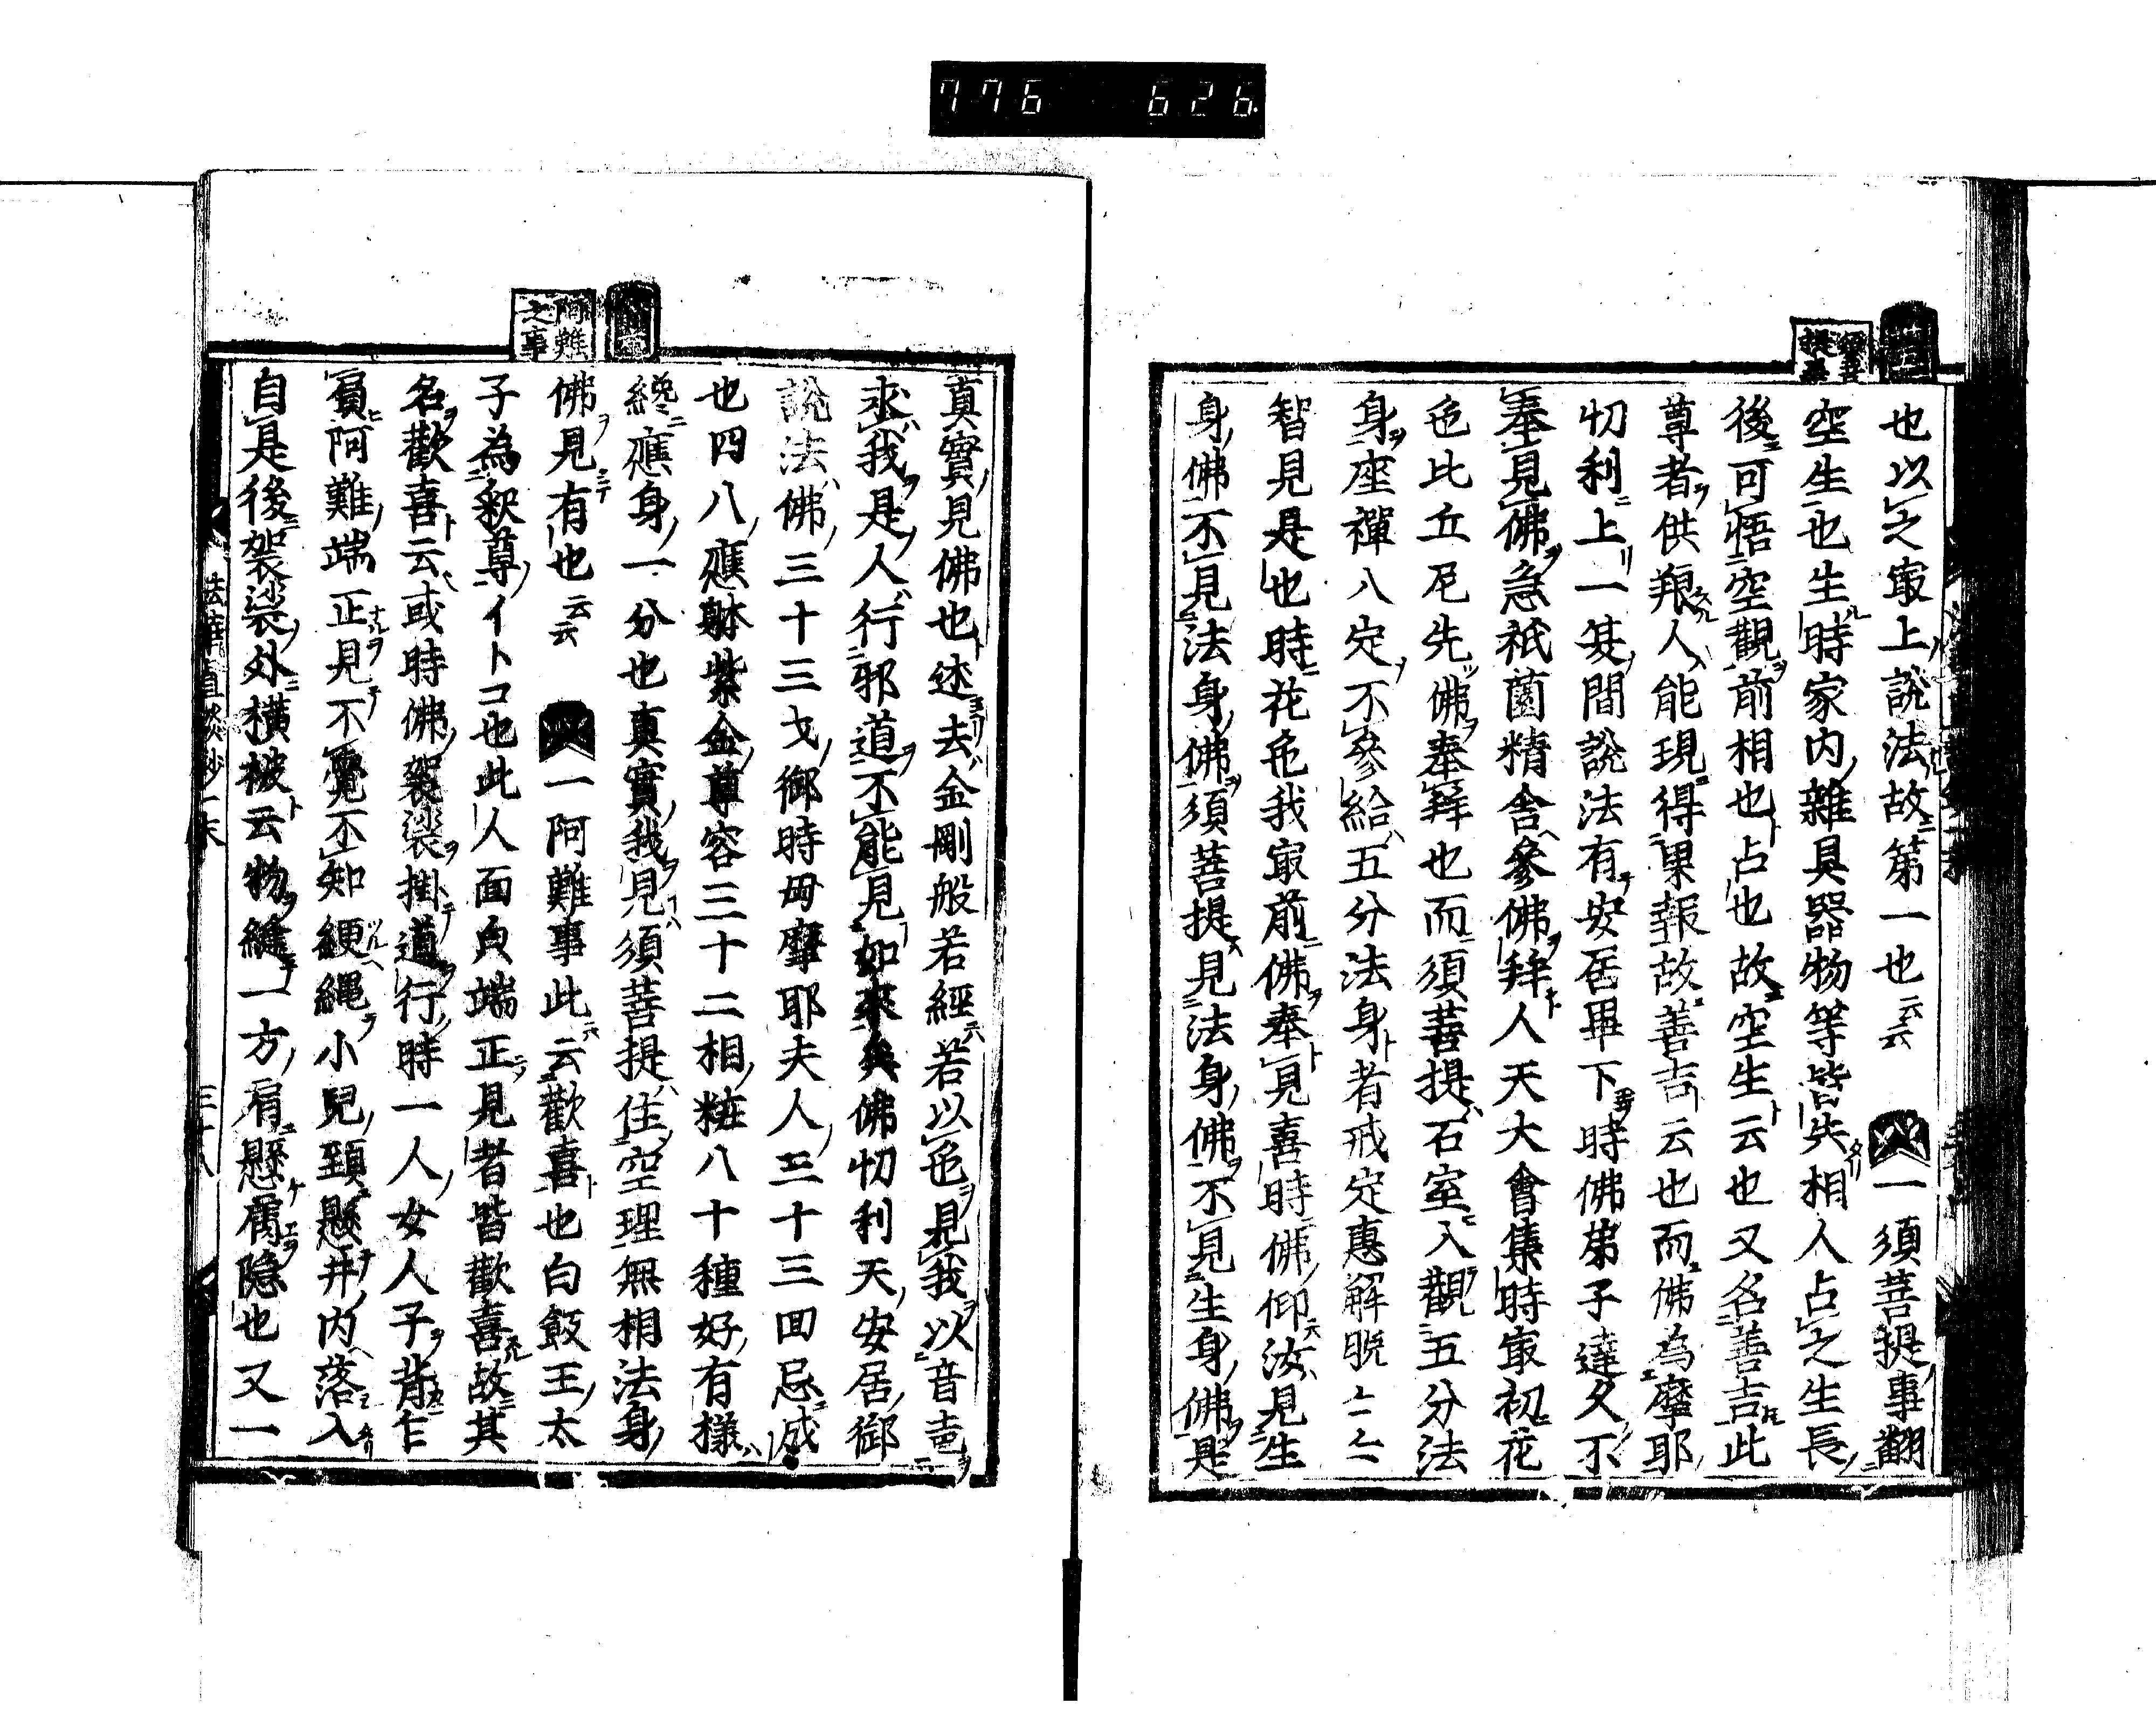 776 626
須菩提事
也以之㝡上說法故第一也云云 一須菩提事翻
空生也生時家内雜具器物等皆失相人占之生長
後可悟空觀前相也占也故空生云也又名善吉此
尊者供粮人能現得果報故善吉云也而佛為摩耶
忉利上一夏間說法有安居畢下時佛弟子達久不
奉見佛急祇薗精舍參佛拜人天大會集時㝡初花
色比丘尼先佛奉拜也而須菩提石室入觀五分法
身座禪八定不參給五分法身者戒定惠解脱
智見是也時花色我㝡前佛奉見喜時佛仰汝見生
身佛不見法身佛須菩提見法身佛不見生身佛是
阿難之事
真實見佛也述去金剛般若經若以色見我以音声
求我是人行邪道不能見如來矣佛忉利天安居御
說法佛三十三才御時毋摩耶夫人三十三回忌
也四八應躰紫金尊容三十二相粧八十種好有樣
纔應身一分也真實我見須菩提住空理無相法身
佛見有也云云 一阿難事此云歡喜也白飯王太
子為釈尊イトコ也此人面皃端正見者皆歡喜故其
名歡喜云或時佛袈裟掛道行時一人女人子背乍
負阿難端正見不覺不知綆繩小兒頚懸井内落入
自是後袈裟外横被云物縫一方肩懸膚隐也又一
法華直談鈔一末 三十八